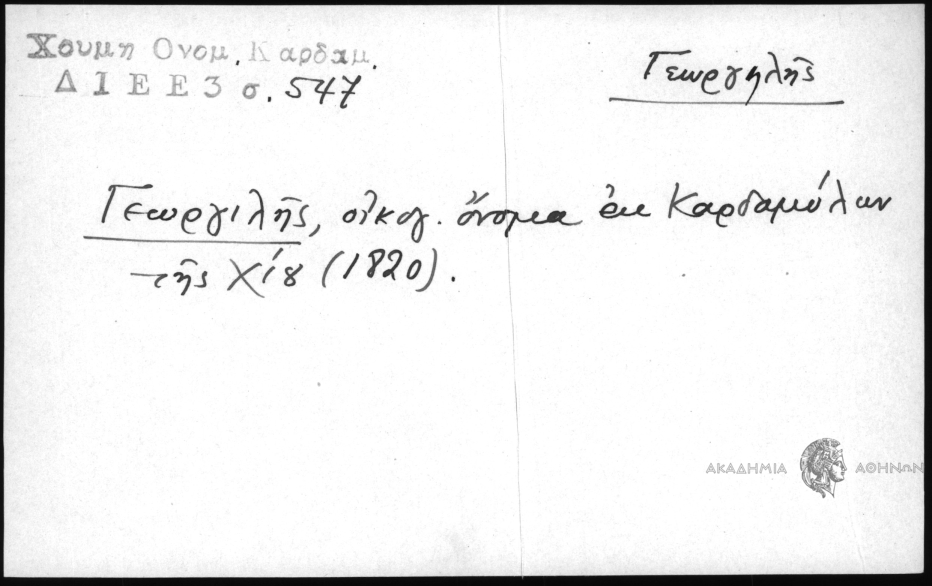 Χουμη Ονομ. Καρδαμ.
ΔΙΕΕ 3 σ. 547
Γεωργηλῆς
Γεωργιλῆς, οἰκογ. ὄνομα ἐκ Καρδαμύλων
τῆς Χίου (1820).
ΑΚΑΔΗΜΙΑ ΑΘΗΝΩΝ